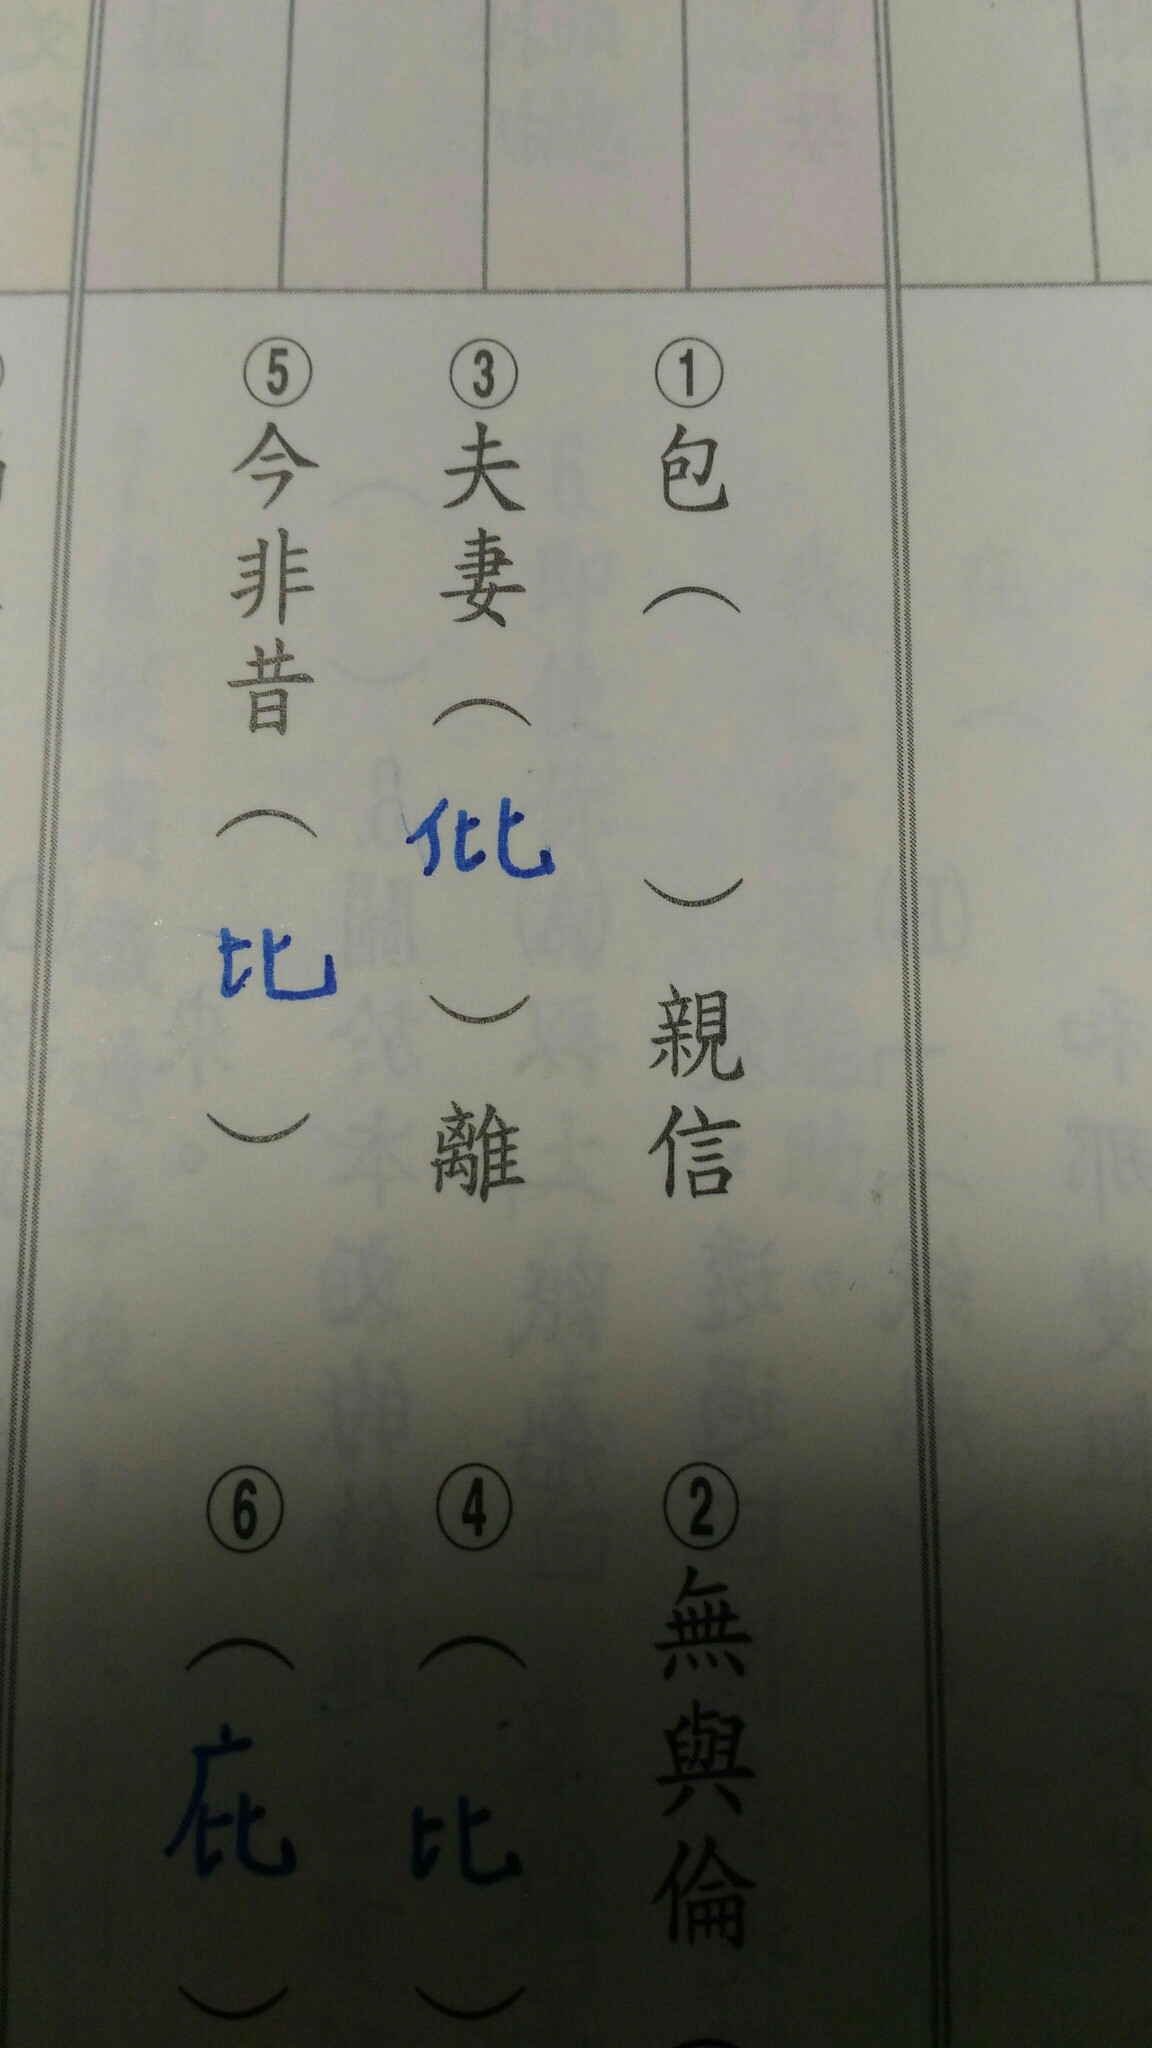 ①包（　　）親信
②無與倫（
③夫妻（仳）離
④（比）
⑤今非昔（比）
⑥（庇）